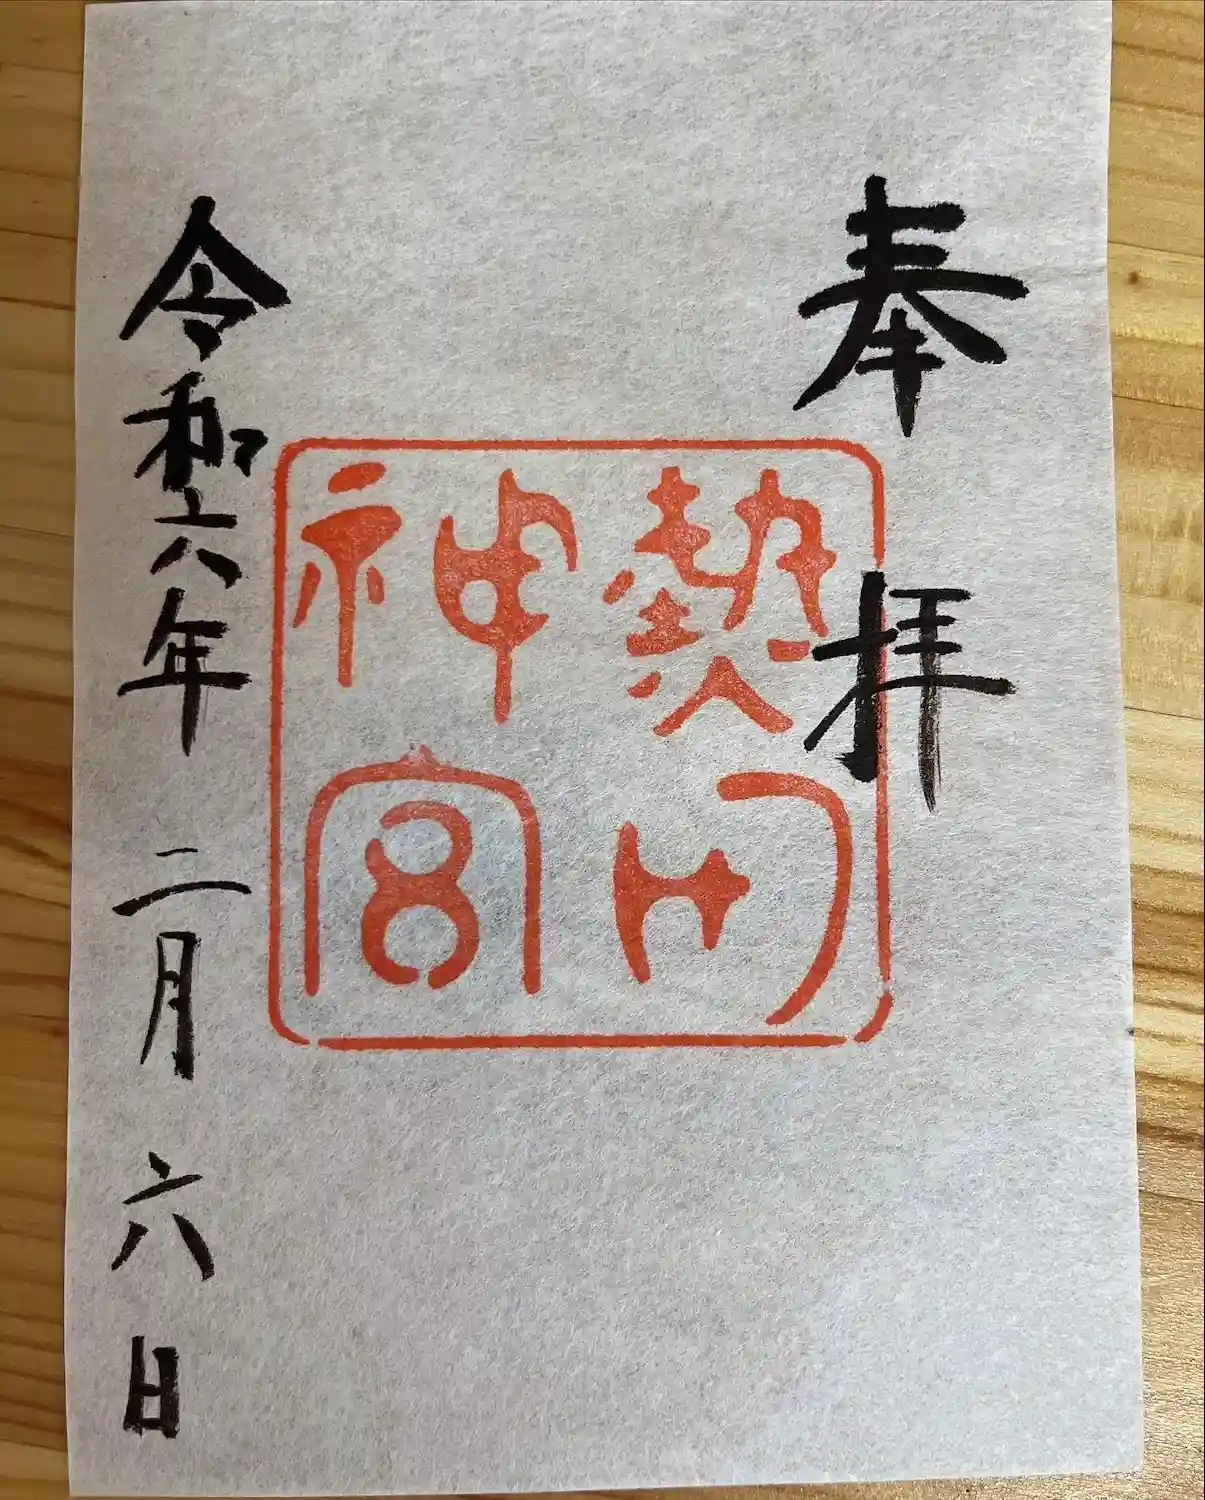 奉拝
熱田
神宮
令和六年二月六日